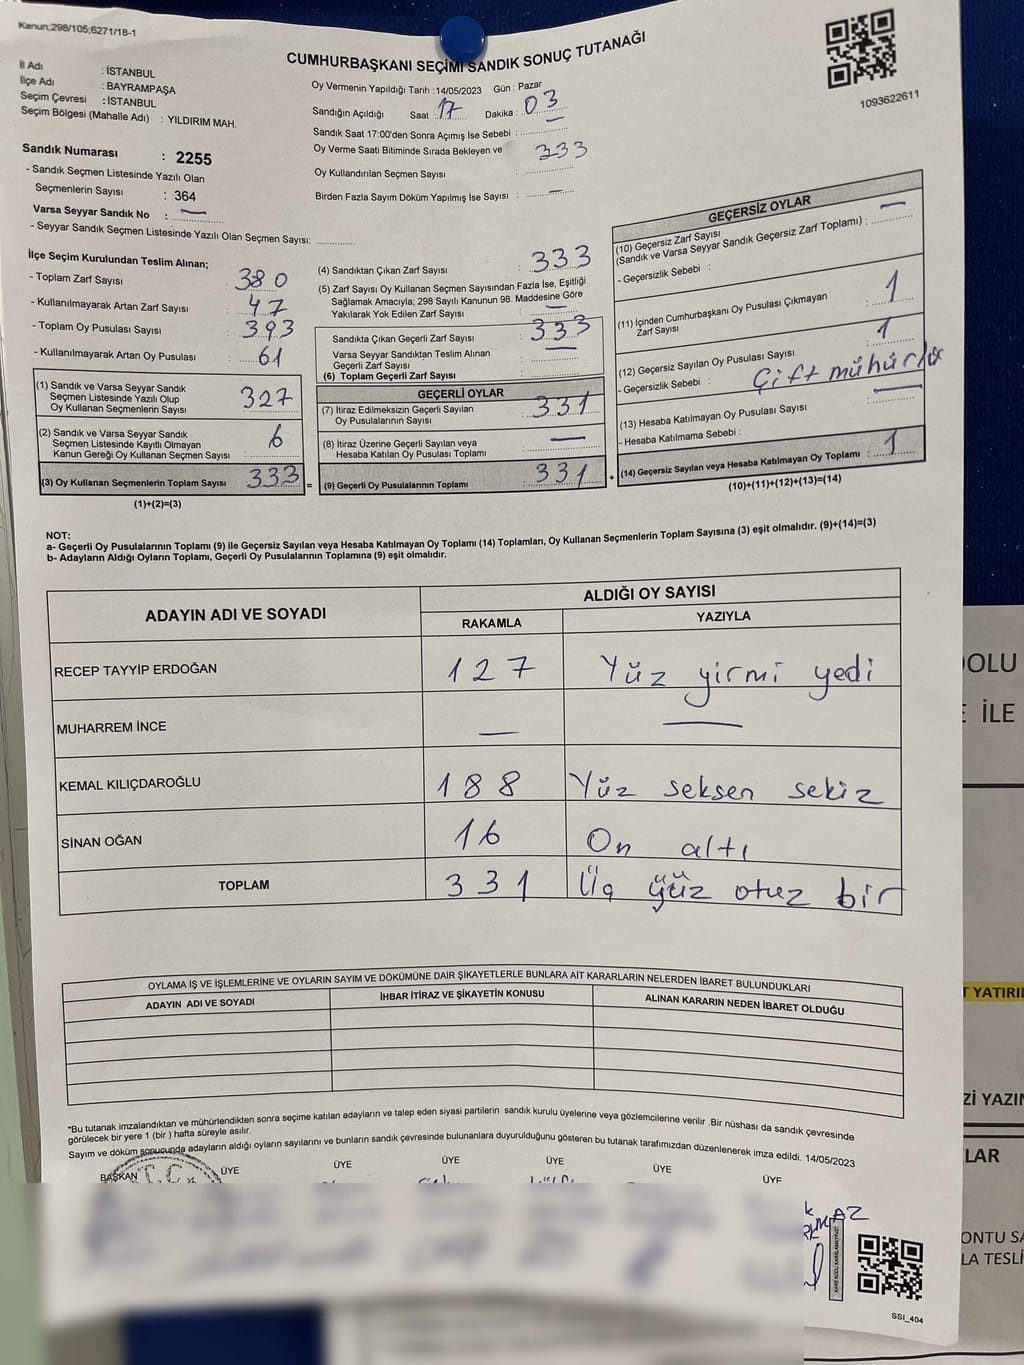 Kanun;298/105;6271/18-1
CUMHURBAŞKANI SEÇİMİ SANDIK SONUÇ TUTANAĞI
1093622611
İl Adı : İSTANBUL
İlçe Adı : BAYRAMPAŞA
Seçim Çevresi : İSTANBUL
Seçim Bölgesi (Mahalle Adı) : YILDIRIM MAH.
Oy Vermenin Yapıldığı Tarih :14/05/2023 Gün : Pazar
Sandığın Açıldığı Saat : 17 Dakika : 03
Sandık Saat 17:00'den Sonra Açımış İse Sebebi : —
Oy Verme Saati Bitiminde Sırada Bekleyen ve
Oy Kullandırılan Seçmen Sayısı : 333
Birden Fazla Sayım Döküm Yapılmış İse Sayısı : —
Sandık Numarası : 2255
- Sandık Seçmen Listesinde Yazılı Olan
Seçmenlerin Sayısı : 364
Varsa Seyyar Sandık No : —
- Seyyar Sandık Seçmen Listesinde Yazılı Olan Seçmen Sayısı:
İlçe Seçim Kurulundan Teslim Alınan;
- Toplam Zarf Sayısı : 380
- Kullanılmayarak Artan Zarf Sayısı : 47
- Toplam Oy Pusulası Sayısı : 393
- Kullanılmayarak Artan Oy Pusulası : 61
(1) Sandık ve Varsa Seyyar Sandık
Seçmen Listesinde Yazılı Olup
Oy Kullanan Seçmenlerin Sayısı : 327
(2) Sandık ve Varsa Seyyar Sandık
Seçmen Listesinde Kayıtlı Olmayan
Kanun Gereği Oy Kullanan Seçmen Sayısı : 6
(3) Oy Kullanan Seçmenlerin Toplam Sayısı : 333
(1)+(2)=(3)
(4) Sandıktan Çıkan Zarf Sayısı : 333
(5) Zarf Sayısı Oy Kullanan Seçmen Sayısından Fazla İse, Eşitliği
Sağlamak Amacıyla; 298 Sayılı Kanunun 98. Maddesine Göre
Yakılarak Yok Edilen Zarf Sayısı : —
Sandıkta Çıkan Geçerli Zarf Sayısı : 333
Varsa Seyyar Sandıktan Teslim Alınan
Geçerli Zarf Sayısı : —
(6) Toplam Geçerli Zarf Sayısı
GEÇERLİ OYLAR
(7) İtiraz Edilmeksizin Geçerli Sayılan
Oy Pusulalarının Sayısı : 331
(8) İtiraz Üzerine Geçerli Sayılan veya
Hesaba Katılan Oy Pusulası Toplamı : —
= (9) Geçerli Oy Pusulalarının Toplamı : 331
GEÇERSİZ OYLAR
(10) Geçersiz Zarf Sayısı
(Sandık ve Varsa Seyyar Sandık Geçersiz Zarf Toplamı) : —
- Geçersizlik Sebebi :
(11) İçinden Cumhurbaşkanı Oy Pusulası Çıkmayan
Zarf Sayısı : 1
(12) Geçersiz Sayılan Oy Pusulası Sayısı : 1
- Geçersizlik Sebebi : Çift mühürlü
(13) Hesaba Katılmayan Oy Pusulası Sayısı : —
- Hesaba Katılmama Sebebi :
+ (14) Geçersiz Sayılan veya Hesaba Katılmayan Oy Toplamı : 1
(10)+(11)+(12)+(13)=(14)
NOT:
a- Geçerli Oy Pusulalarının Toplamı (9) ile Geçersiz Sayılan veya Hesaba Katılmayan Oy Toplamı (14) Toplamları, Oy Kullanan Seçmenlerin Toplam Sayısına (3) eşit olmalıdır. (9)+(14)=(3)
b- Adayların Aldığı Oyların Toplamı, Geçerli Oy Pusulalarının Toplamına (9) eşit olmalıdır.
ADAYIN ADI VE SOYADI ALDIĞI OY SAYISI
RAKAMLA YAZIYLA
RECEP TAYYİP ERDOĞAN 127 Yüz yirmi yedi
MUHARREM İNCE — —
KEMAL KILIÇDAROĞLU 188 Yüz seksen sekiz
SİNAN OĞAN 16 On altı
TOPLAM 331 Üç yüz otuz bir
OYLAMA İŞ VE İŞLEMLERİNE VE OYLARIN SAYIM VE DÖKÜMÜNE DAİR ŞİKAYETLERLE BUNLARA AİT KARARLARIN NELERDEN İBARET BULUNDUKLARI
ADAYIN ADI VE SOYADI İHBAR İTİRAZ VE ŞİKAYETİN KONUSU ALINAN KARARIN NEDEN İBARET OLDUĞU
*Bu tutanak imzalandıktan ve mühürlendikten sonra seçime katılan adayların ve talep eden siyasi partilerin sandık kurulu üyelerine veya gözlemcilerine verilir .Bir nüshası da sandık çevresinde
görülecek bir yere 1 (bir ) hafta süreyle asılır.
Sayım ve döküm sonucunda adayların aldığı oyların sayılarını ve bunların sandık çevresinde bulunanlara duyurulduğunu gösteren bu tutanak tarafımızdan düzenlenerek imza edildi. 14/05/2023
BAŞKAN ÜYE ÜYE ÜYE ÜYE ÜYE ÜYE
T.C.
KARE KODU KARALAMAYINIZ!
SSI_404
OLU
İLE
T YATIRIL
Zİ YAZIN
LAR
ONTU SA
LA TESLİ